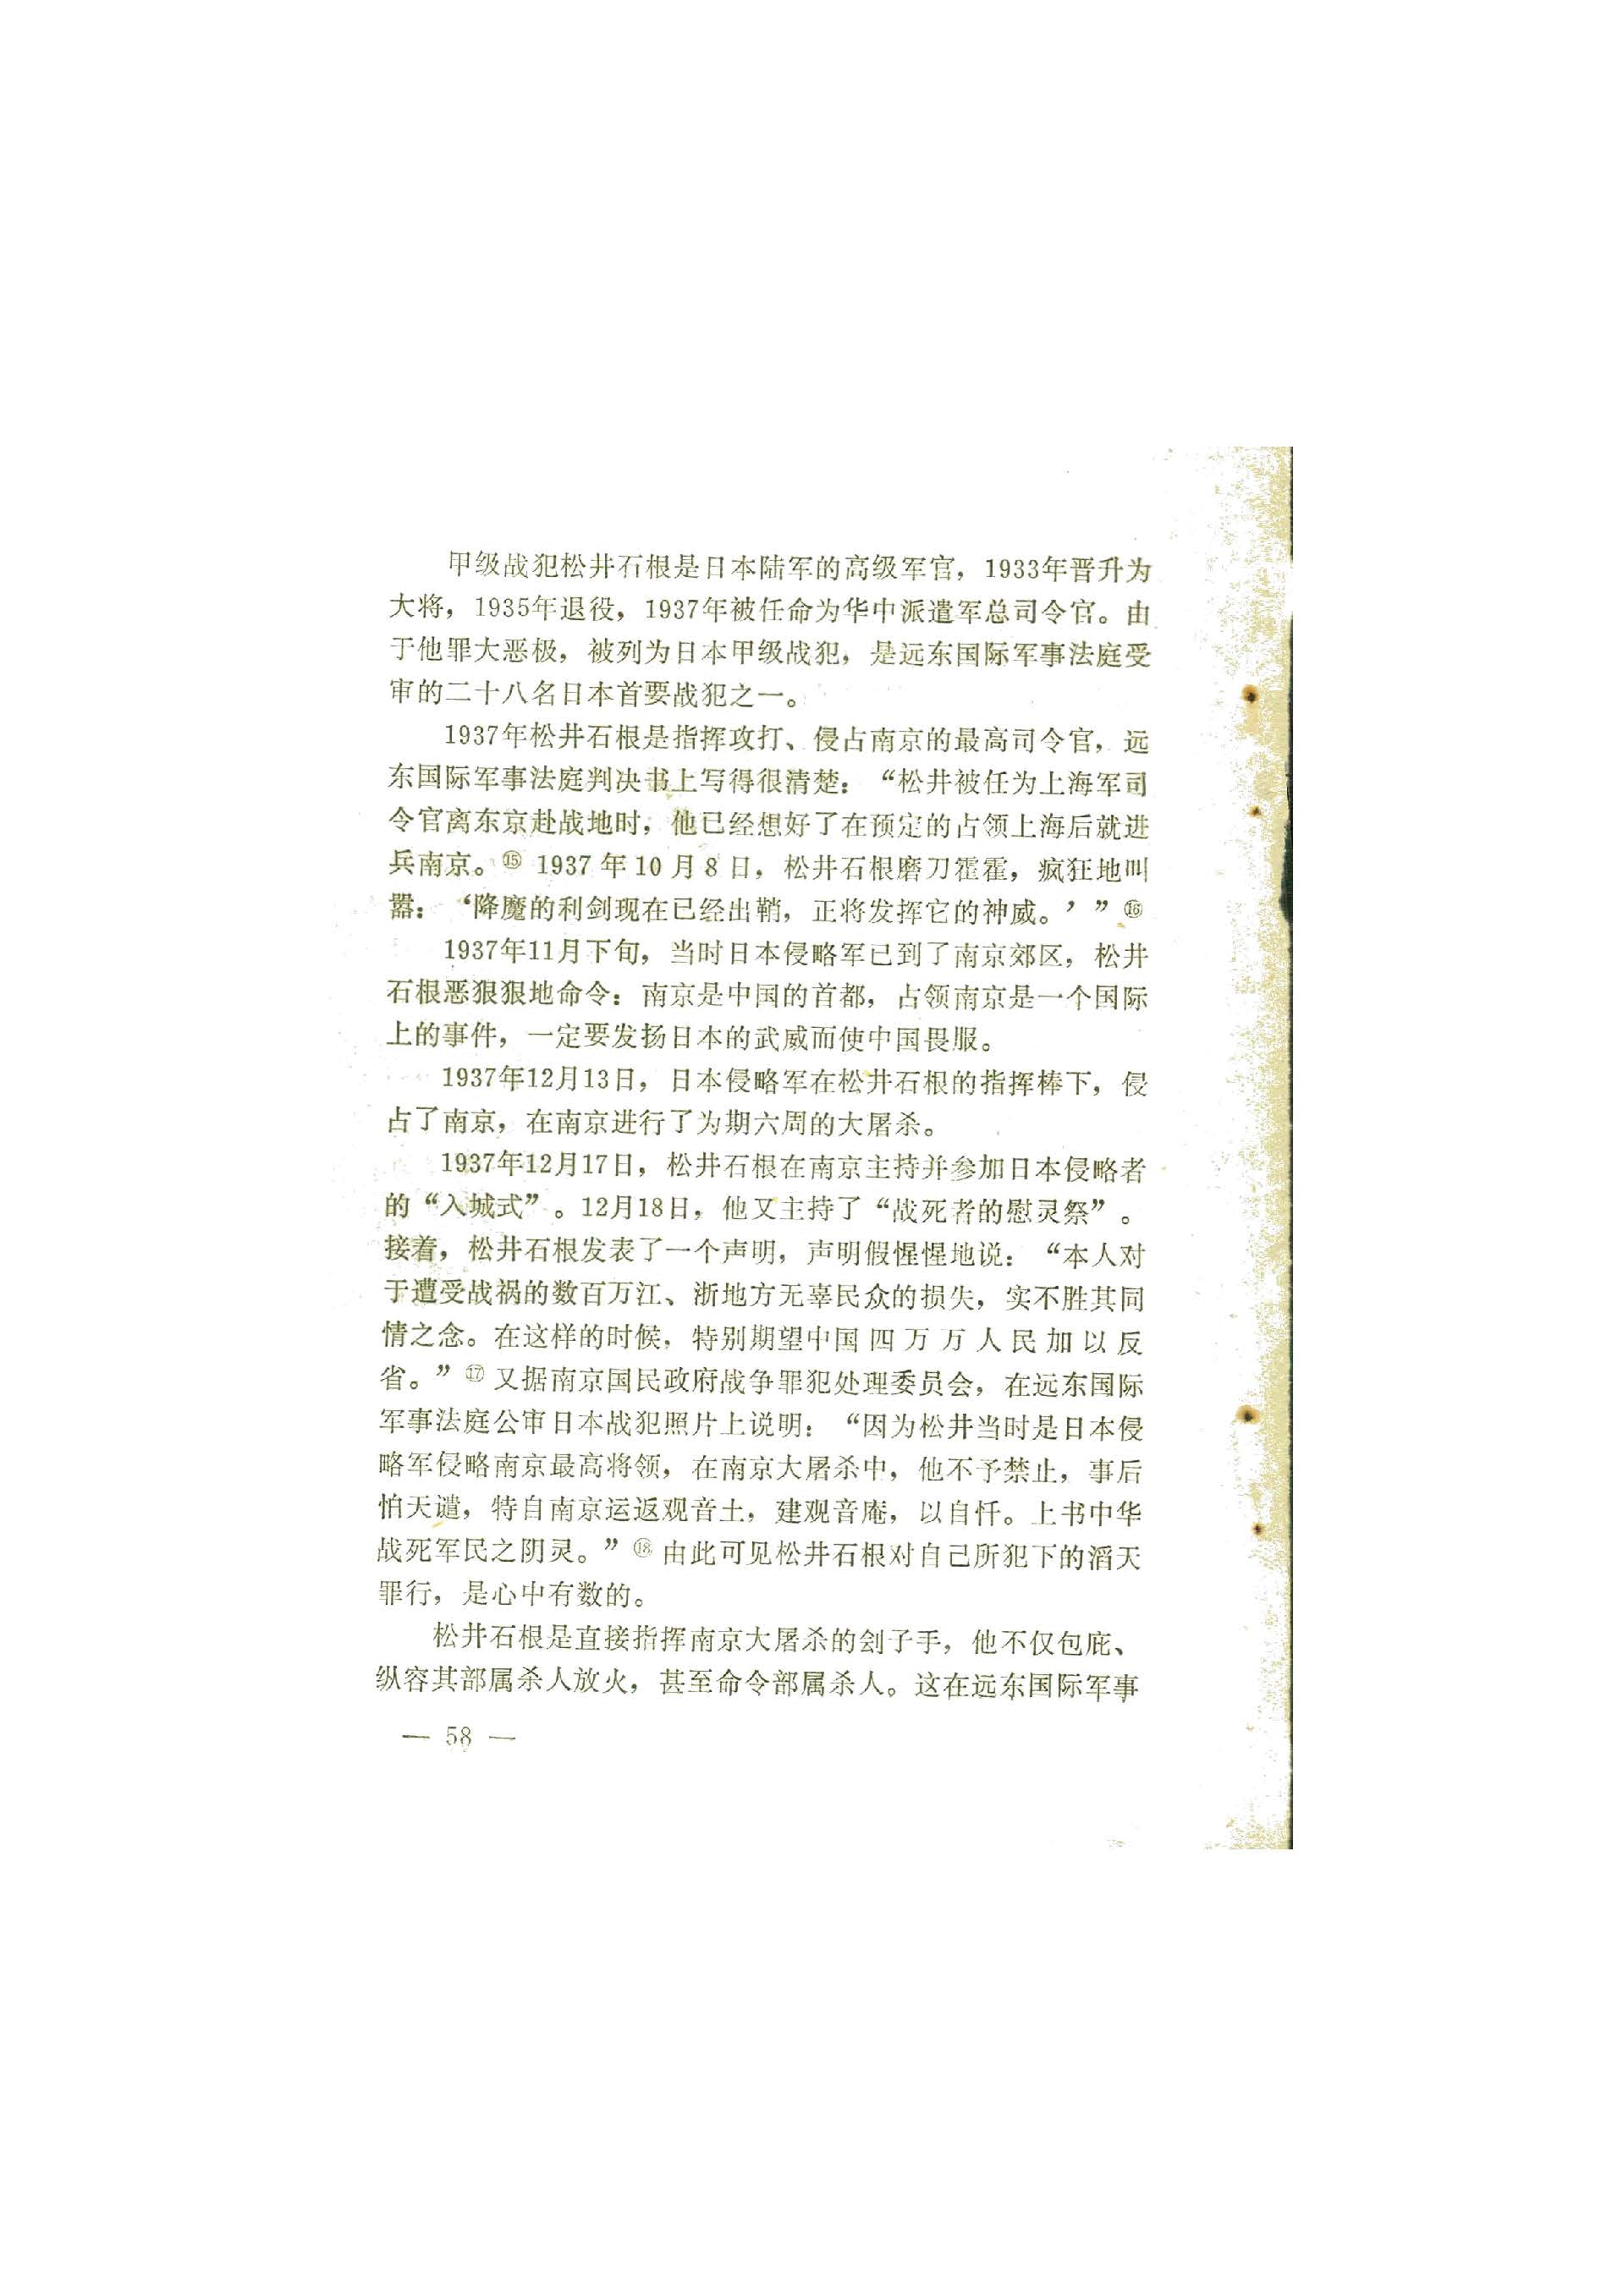 甲级战犯松井石根是日本陆军的高级军官，1933年晋升为
大将，1935年退役，1937年被任命为华中派遣军总司令官。由
于他罪大恶极，被列为日本甲级战犯，是远东国际军事法庭受
审的二十八名日本首要战犯之一。
1937年松井石根是指挥攻打、侵占南京的最高司令官，远
东国际军事法庭判决书上写得很清楚：“松井被任为上海军司
令官离东京赴战地时，他已经想好了在预定的占领上海后就进
兵南京。⑮ 1937年10月8日，松井石根磨刀霍霍，疯狂地叫
嚣：‘降魔的利剑现在已经出鞘，正将发挥它的神威。’”⑯
1937年11月下旬，当时日本侵略军已到了南京郊区，松井
石根恶狠狠地命令：南京是中国的首都，占领南京是一个国际
上的事件，一定要发扬日本的武威而使中国畏服。
1937年12月13日，日本侵略军在松井石根的指挥棒下，侵
占了南京，在南京进行了为期六周的大屠杀。
1937年12月17日，松井石根在南京主持并参加日本侵略者
的“入城式”。12月18日，他又主持了“战死者的慰灵祭”。
接着，松井石根发表了一个声明，声明假惺惺地说：“本人对
于遭受战祸的数百万江、浙地方无辜民众的损失，实不胜其同
情之念。在这样的时候，特别期望中国四万万人民加以反
省。”⑰ 又据南京国民政府战争罪犯处理委员会，在远东国际
军事法庭公审日本战犯照片上说明：“因为松井当时是日本侵
略军侵略南京最高将领，在南京大屠杀中，他不予禁止，事后
怕天谴，特自南京运返观音土，建观音庵，以自忏。上书中华
战死军民之阴灵。”⑱ 由此可见松井石根对自己所犯下的滔天
罪行，是心中有数的。
松井石根是直接指挥南京大屠杀的刽子手，他不仅包庇、
纵容其部属杀人放火，甚至命令部属杀人。这在远东国际军事
— 58 —